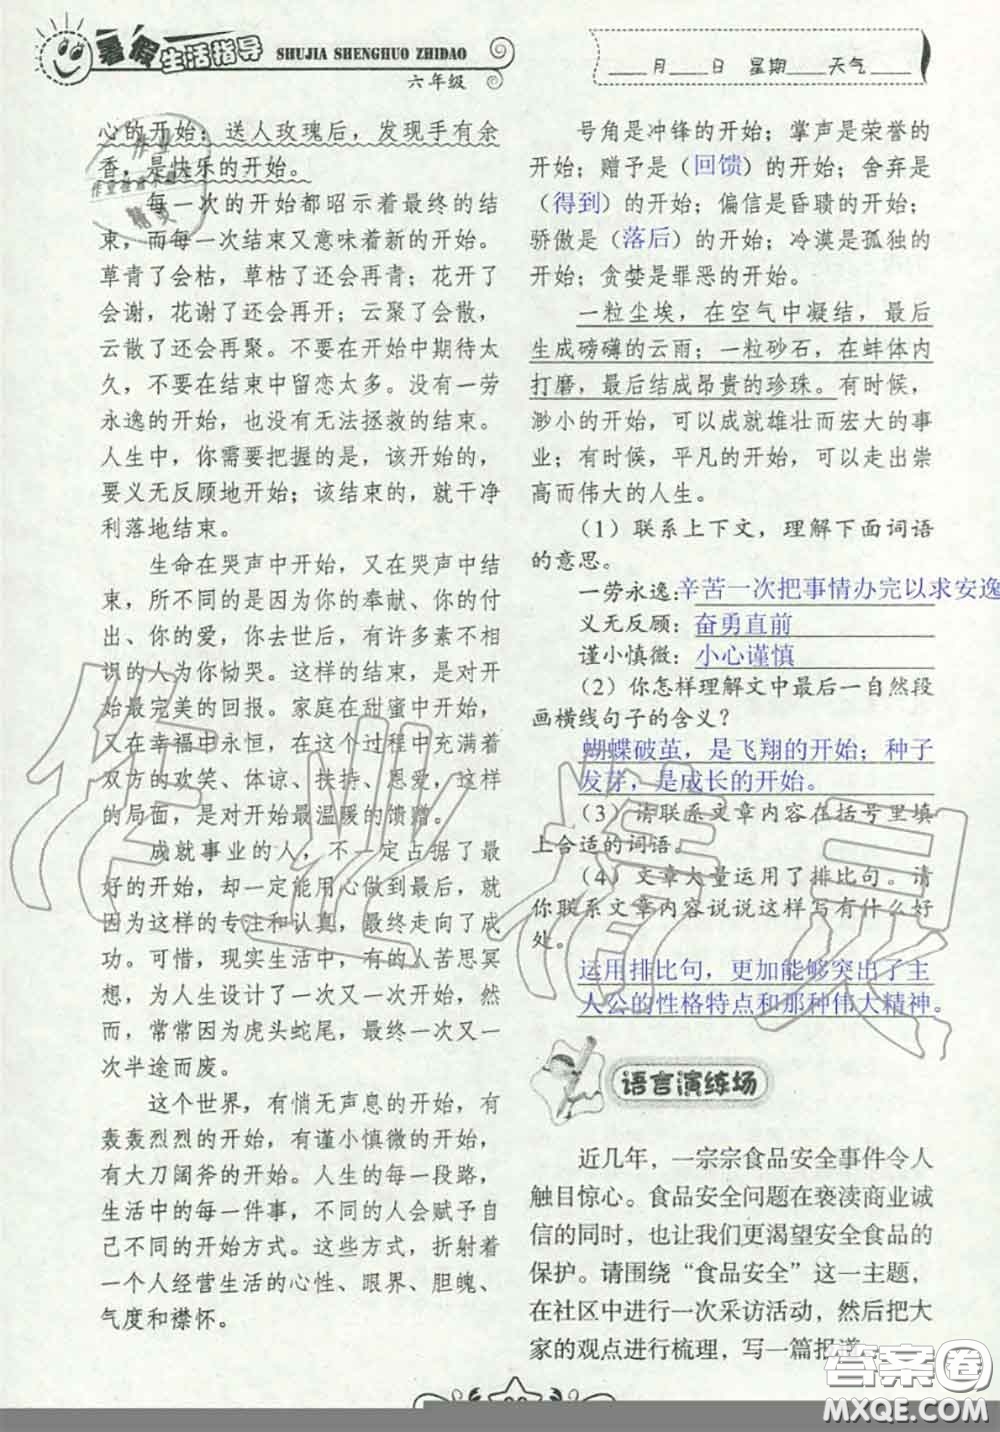 暑假生活指导 SHUJIA SHENGHUO ZHIDAO
六年级
____月____日 星期____天气____
心的开始；送人玫瑰后，发现手有余
香，是快乐的开始。
每一次的开始都昭示着最终的结
束，而每一次结束又意味着新的开始。
草青了会枯，草枯了还会再青；花开了
会谢，花谢了还会再开；云聚了会散，
云散了还会再聚。不要在开始中期待太
久，不要在结束中留恋太多。没有一劳
永逸的开始，也没有无法拯救的结束。
人生中，你需要把握的是，该开始的，
要义无反顾地开始；该结束的，就干净
利落地结束。
生命在哭声中开始，又在哭声中结
束，所不同的是因为你的奉献、你的付
出、你的爱，你去世后，有许多素不相
识的人为你恸哭。这样的结束，是对开
始最完美的回报。家庭在甜蜜中开始，
又在幸福中永恒，在这个过程中充满着
双方的欢笑、体谅、扶持、恩爱，这样
的局面，是对开始最温暖的馈赠。
成就事业的人，不一定占据了最
好的开始，却一定能用心做到最后，就
因为这样的专注和认真，最终走向了成
功。可惜，现实生活中，有的人苦思冥
想，为人生设计了一次又一次开始，然
而，常常因为虎头蛇尾，最终一次又一
次半途而废。
这个世界，有悄无声息的开始，有
轰轰烈烈的开始，有谨小慎微的开始，
有大刀阔斧的开始。人生的每一段路，
生活中的每一件事，不同的人会赋予自
己不同的开始方式。这些方式，折射着
一个人经营生活的心性、眼界、胆魄、
气度和襟怀。
号角是冲锋的开始；掌声是荣誉的
开始；赠予是（回馈）的开始；舍弃是
（得到）的开始；偏信是昏聩的开始；
骄傲是（落后）的开始；冷漠是孤独的
开始；贪婪是罪恶的开始。
一粒尘埃，在空气中凝结，最后
生成磅礴的云雨；一粒砂石，在蚌体内
打磨，最后结成昂贵的珍珠。有时候，
渺小的开始，可以成就雄壮而宏大的事
业；有时候，平凡的开始，可以走出崇
高而伟大的人生。
（1）联系上下文，理解下面词语
的意思。
一劳永逸：辛苦一次把事情办完以求安逸
义无反顾：奋勇直前
谨小慎微：小心谨慎
（2）你怎样理解文中最后一自然段
画横线句子的含义？
蝴蝶破茧，是飞翔的开始；种子
发芽，是成长的开始。
（3）请联系文章内容在括号里填
上合适的词语。
（4）文章大量运用了排比句。请
你联系文章内容说说这样写有什么好
处。
运用排比句，更加能够突出了主
人公的性格特点和那种伟大精神。
语言演练场
近几年，一宗宗食品安全事件令人
触目惊心。食品安全问题在亵渎商业诚
信的同时，也让我们更渴望安全食品的
保护。请围绕“食品安全”这一主题，
在社区中进行一次采访活动，然后把大
家的观点进行梳理，写一篇报道。
作业精灵
答案圈
MXQE.COM